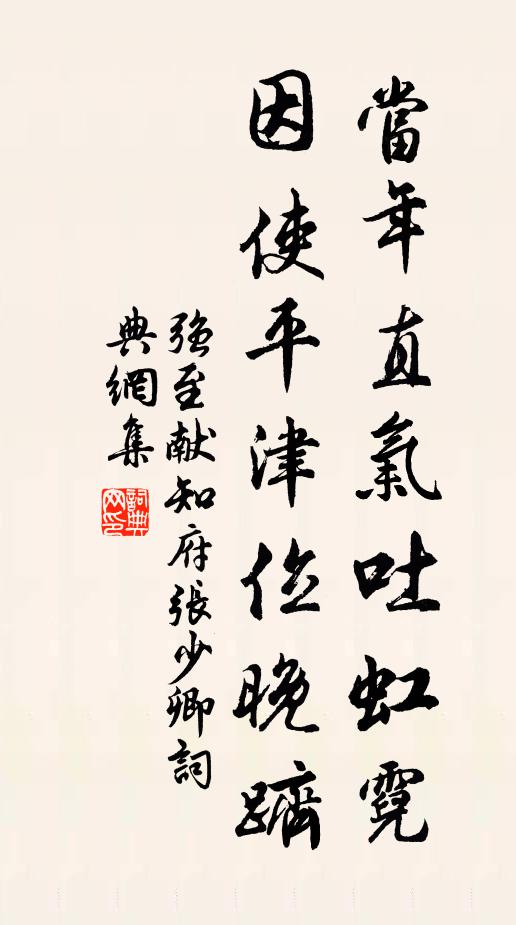 當年直氣吐虹霓
因使平津位晚躋
強至献知府張少卿詞
典網集
詞典网印